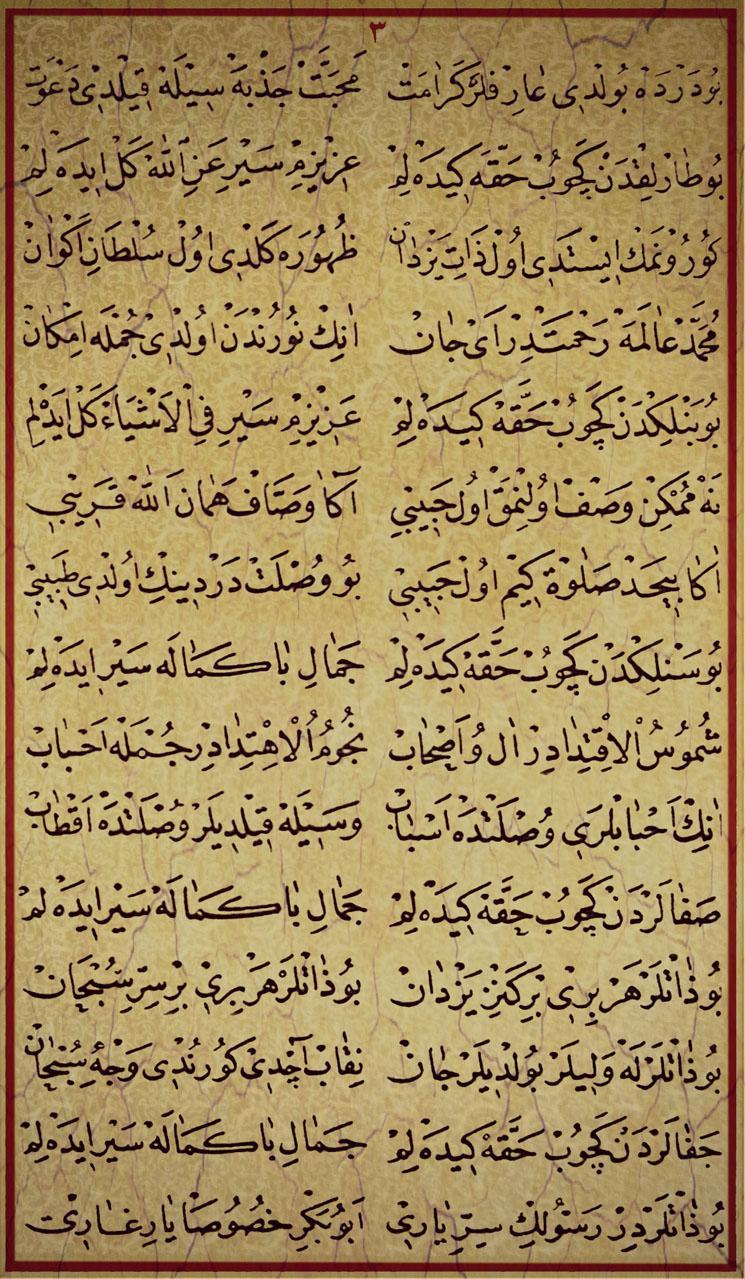 ٣
بُودَرْدَه بُولْدِى عَارِفْلَرْ كَرَامَتْ مَحَبَّتْ جَذْبَه سِيْلَهْ قِيْلْدِى دَعْوَتْ
بُو طَارْلِقْدَنْ كَچُوبْ حَقَّه كِيدَهْ لِمْ عَزِيزِمْ سَيْرِ عَنِ ٱللّٰهْ كَلْ اِيدَهْ لِمْ
كُورُونْمَكْ اِيسْتَدِى اُولْ ذَاتِ يَزْدَانْ ظُهُورَه كَلْدِى اُولْ سُلْطَانِ اَكْوَانْ
مُحَمَّدْ عَالَمَهْ رَحْمَتْدِرْ اَىْ جَانْ اَنِكْ نُورُنْدَنْ اُولْدِىْ جُمْلَه اِمْكَانْ
بُو بَنْلِكْدَنْ كَچُوبْ حَقَّهْ كِيدَهْ لِمْ عَزِيزِمْ سَيْرِ فِى الْاَشْيَاءْ كَلْ اِيدَهْ لِمْ
نَهْ مُمْكِنْ وَصْفْ اُولِنْمَقْ اُولْ حَبِيبِي اَكَا وَصَّافْ هَمَانْ اَللّٰهْ قَرِيبِي
اَكَا بِيحَدْ صَلٰوةْ كِيمْ اُولْ حَبِيبِي بُو وُصْلَتْ دَرْدِينِكْ اُولْدِى طَبِيبِي
بُو سَنْلِكْدَنْ كَچُوبْ حَقَّهْ كِيدَهْ لِمْ جَمَالِ بَا كَمَالَه سَيْرْ اِيدَهْ لِمْ
شُمُوسُ الْاِقْتِدَادِرْ اٰلْ وُ اَصْحَابْ نُجُومُ الْاِهْتِدَادِرْ جُمْلَهْ اَحْبَابْ
اَنِكْ اَحْبَابْلَرِى وُصْلَتْدَهْ اَسْبَابْ وَسِيلَهْ قِيلْدِيلَرْ وُصْلَتْدَهْ اَقْطَابْ
صَفَالَرْدَنْ كَچُوبْ حَقَّهْ كِيدَهْ لِمْ جَمَالِ بَا كَمَالَهْ سَيْرْ اِيدَهْ لِمْ
بُو ذَاتْلَرْ هَرْ بِرِى بَرْ كَنْزِ يَزْدَانْ بُو ذَاتْلَرْ هَرْ بِرِى بِرْ سِرِّ سُبْحَانْ
بُو ذَاتْلَرْلَهْ وَلِيلَرْ بُولْدِيلَرْ جَانْ نِقَابْ آچْدِىْ كُورُنْدِى وَجْهِ سُبْحَانْ
جَفَالَرْدَنْ كَچُوبْ حَقَّهْ كِيدَهْ لِمْ جَمَالِ بَا كَمَالَهْ سَيْرْ اِيدَهْ لِمْ
بُو ذَاتْلَرْدِرْ رَسُولِكْ سِرِّ يَارِى اَبُو بَكْرِ خُصُوصَا يَارِ غَارِى